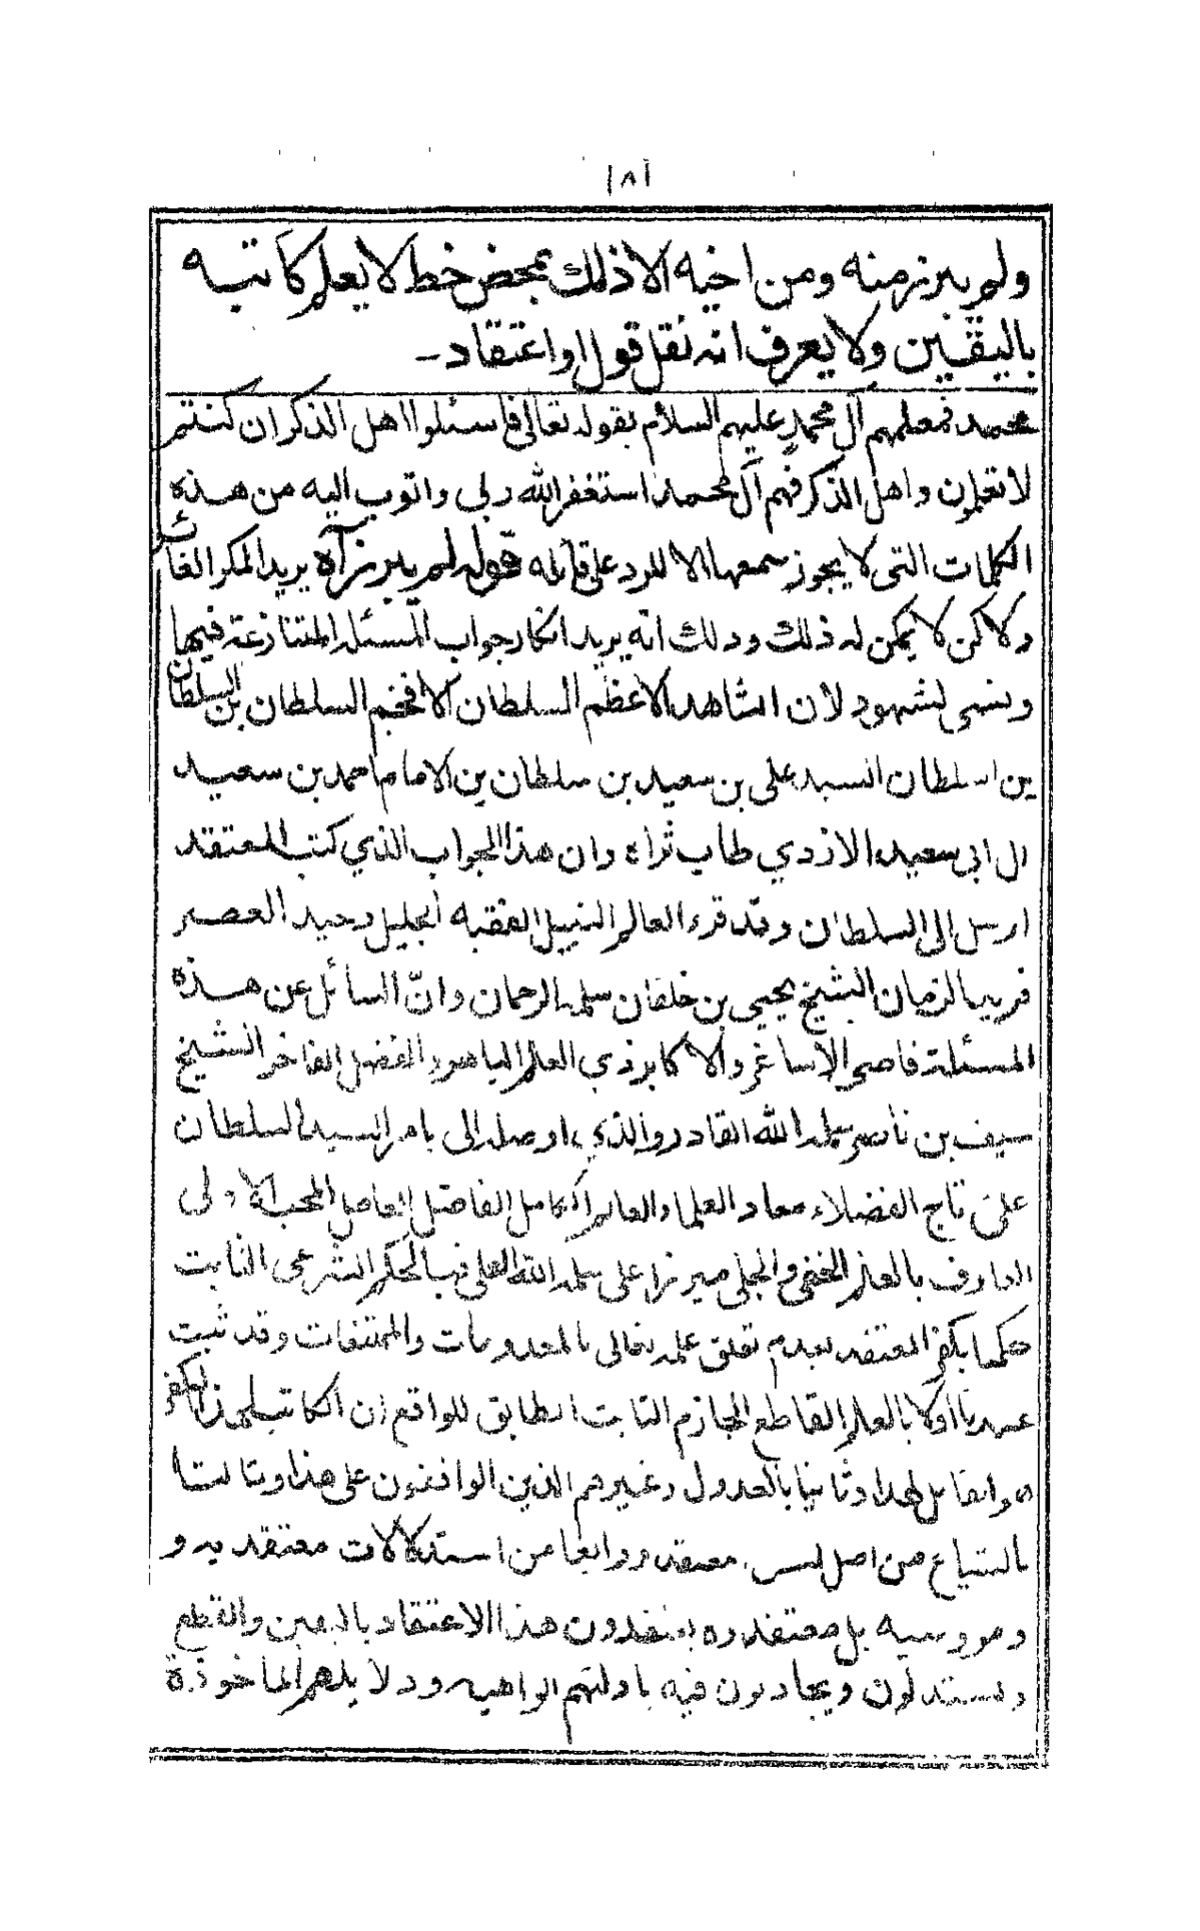 ١٨١
ولم يبرز منه ومن اخيه الا ذلك بمحض خط لا يعلم كاتبه
باليقين ولا يعرف انه نقل قول او اعتقاد
محمد فمعلمهم آل محمد عليهم السلام بقوله تعالى فاسئلوا اهل الذكر ان كنتم
لا تعلمون واهل الذكر فهم آل محمد استغفر الله ربي واتوب اليه من هذه
الكلمات التي لا يجوز سمعها الا للرد على قائله قوله لم يبرز آه يريد المكر الغاش
ولاكن لا يمكن له ذلك وذلك انه يريد انكار جواب المسئله المتنازعة فيها
ونسي لشهود لأن الشاهد الاعظم السلطان الافخم السلطان بن السلطان
بن اسلطان السيد علي بن سعيد بن سلطان بن الامام احمد بن سعيد
ال ابي سعيد الازدي طاب ثراه وان هذا الجواب الذي كتب المعتقد
ارسل الى السلطان وقد قرء العالم النبيل الفقيه الجليل وحيد العصر
فريد الزمان الشيخ يحيى بن خلفان سلمه الرحمان وانّ السائل عن هذه
المسئلة فاصر الاساغر والاكابر ذي العلم الباهر والفضل الفاخر الشيخ
سيف بن ناصر سلمه الله القادر والذي اوصله الى بامر السيد السلطان
على تاج الفضلاء معاد العلماء والعالم الكامل الفاضل العامل المحب الاولى
العارف بالعلم الخفي والجلي ميرزا على سلمه الله العلى فبالحكم الشرعى الثابت
حكمنا بكفر المعتقد بعدم تعلق علمه تعالى بالمعدومات والممتنعات وقد ثبت
عندنا اولا بالعلم القاطع الجازم الثابت المطابق للواقع ان الكاتب لهذا الكفر
والقائل لهذا وثانيا بالعدول وغيرهم الذين الواقفون على هذا وثالثا
بالشياع من اصل معتقده ورابعا من استدلالات معتقديه و
بل معتقدوه يعتقدون هذا الاعتقاد باليقين والقطع
ويستدلون ويجادلون فيه بادلتهم الواهيه ودلايلهم الماخوذة